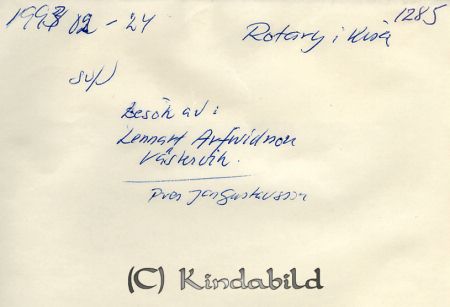 1993 02 - 24
Rotary i Kisa
1285
Besök av:
Lennart Arfwidson
Västervik.
Pres Jan Gustavsson
(C) Kindabild